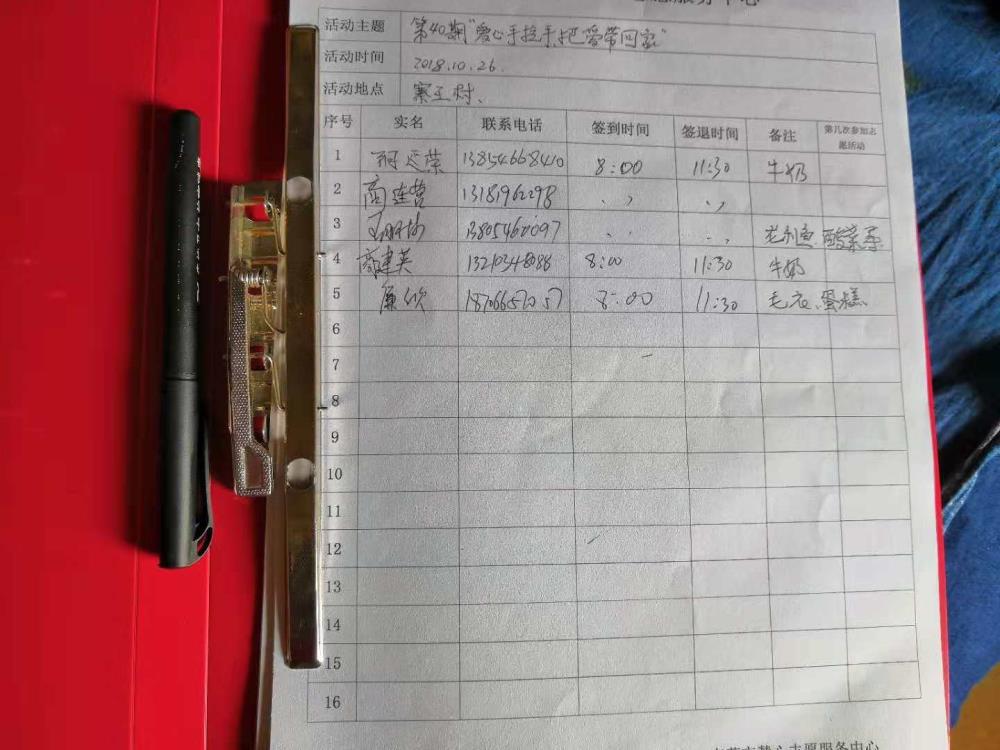 服务中心
活动主题 第40期“爱心手拉手,把爱带回家”
活动时间 2018.10.26.
活动地点
序号 实名 联系电话 签到时间 签退时间 备注 第几次参加志愿活动
1 13854668410 8:00 11:30 牛奶
2 高连营 13181962298 〃 〃
3 13805460097 〃 〃
4 高建英 13210348088 8:00 11:30 牛奶
5 18706657057 8:00 11:30 毛衣、蛋糕
6
7
8
9
10
11
12
13
14
15
16
志愿服务中心